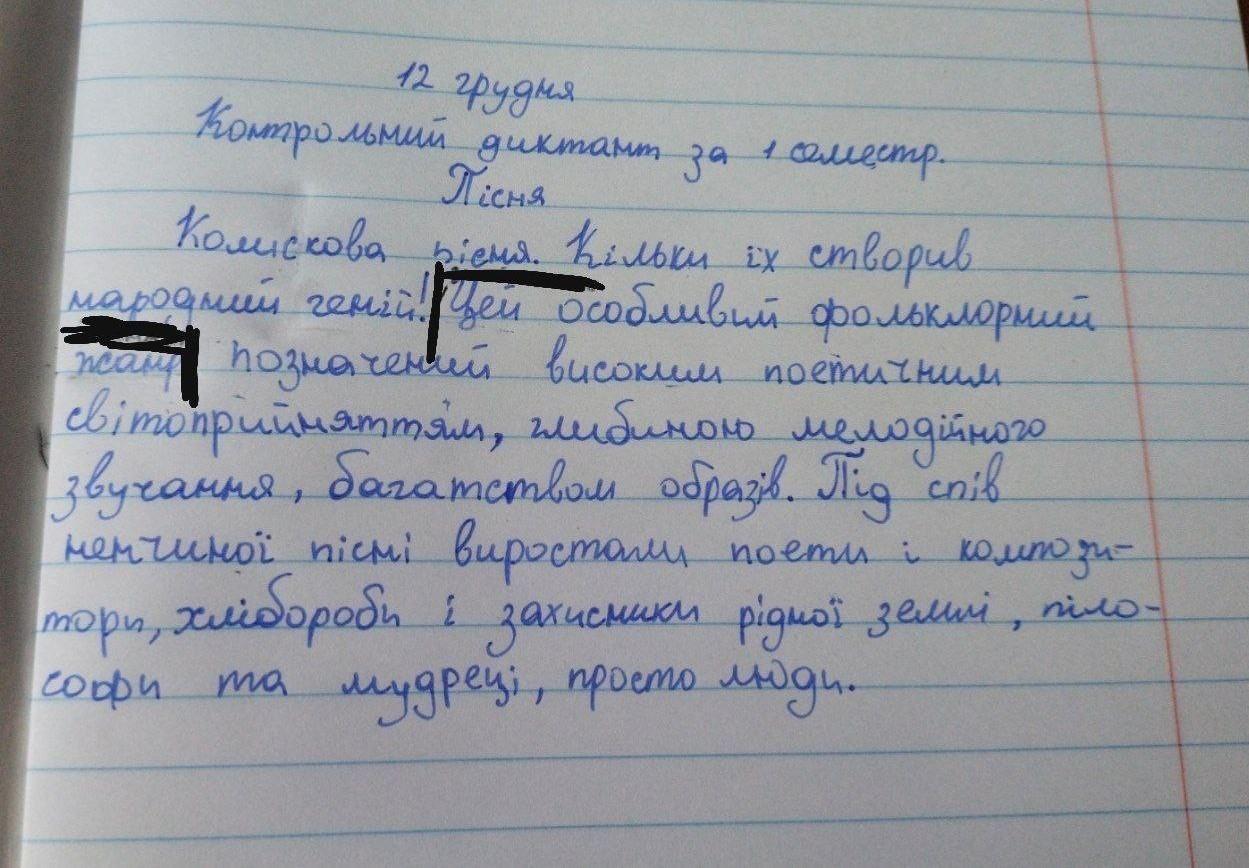 12 грудня
Контрольний диктант за 1 семестр.
Пісня
Колискова пісня. Кільки їх створив
народний геній! Цей особливий фольклорний
жанр позначений високим поетичним
світоприйняттям, глибиною мелодійного
звучання, багатством образів. Під спів
ненчиної пісні виростали поети і компози-
тори, хлібороби і захисники рідної землі, піло-
софи та мудреці, просто люди.